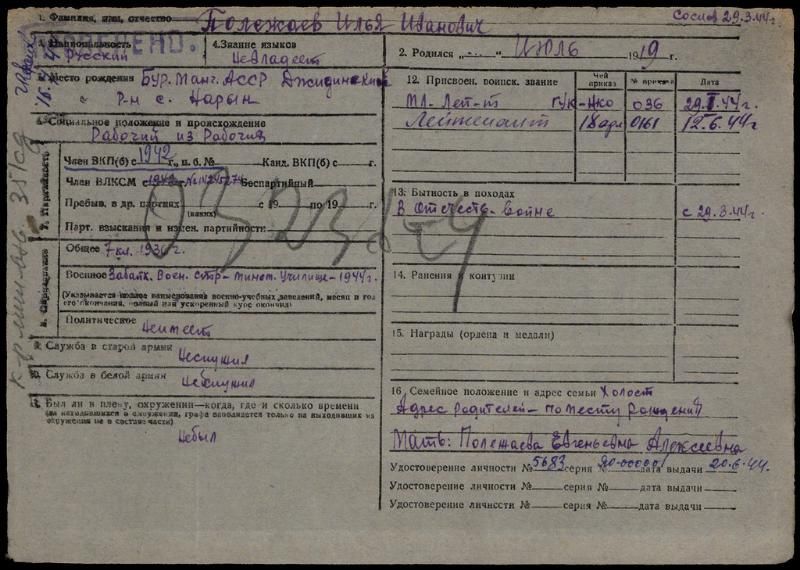 1. Фамилия, имя, отчество Полежаев Илья Иванович
Состав 29.3.44 г.
Национальность
Русский
4. Знание языков
Невладеет
2. Родился „ “ Июль 1919 г.
Место рождения Бур. Монг. АССР Джидинский
р-н с. Нарын
Социальное положение и происхождение
Рабочий из Рабочих
7. Партийность
Член ВКП(б) с 1942 г., п. б. № Канд. ВКП(б) с г.
Член ВЛКСМ с 1942 № 14245274 Беспартийный
Пребыв. в др. партиях с 19 по 19 г.
(каких)
Парт. взыскания и измен. партийности
0323
8. Образование
Общее 7 кл. 1930 г.
Военное Забайк. Воен. стр- миномт. Училище - 1944 г.
(Указывается полное наименование военно-учебных заведений, месяц и год
его окончания, полный или ускоренный курс окончил)
Политическое Неимеет
Служба в старой армии
Неслужил
Служба в белой армии
Неслужил
Был ли в плену, окружении—когда, где и сколько времени
(на находившихся в окружении, графа заполняется только на выходивших из
окружения не в составе части)
Небыл
12. Присвоен. воинск. звание Чей приказ № приказа Дата
Мл. Лей-т ГУК-НКО 036 29.II.44 г.
Лейтенант 18 арм 0161 12.6.44 г.
13. Бытность в походах
В Отечеств. войне с 29.3.44 г.
14. Ранения и контузии
15. Награды (ордена и медали)
16. Семейное положение и адрес семьи Холост
Адрес родителей - по месту рождения
Мать: Полежаева Евгеньевна Алексеевна
Удостоверение личности № 5683 серия ЯО-00000 дата выдачи 20.6.44.
Удостоверение личности № серия № дата выдачи
Удостоверение личности № серия № дата выдачи